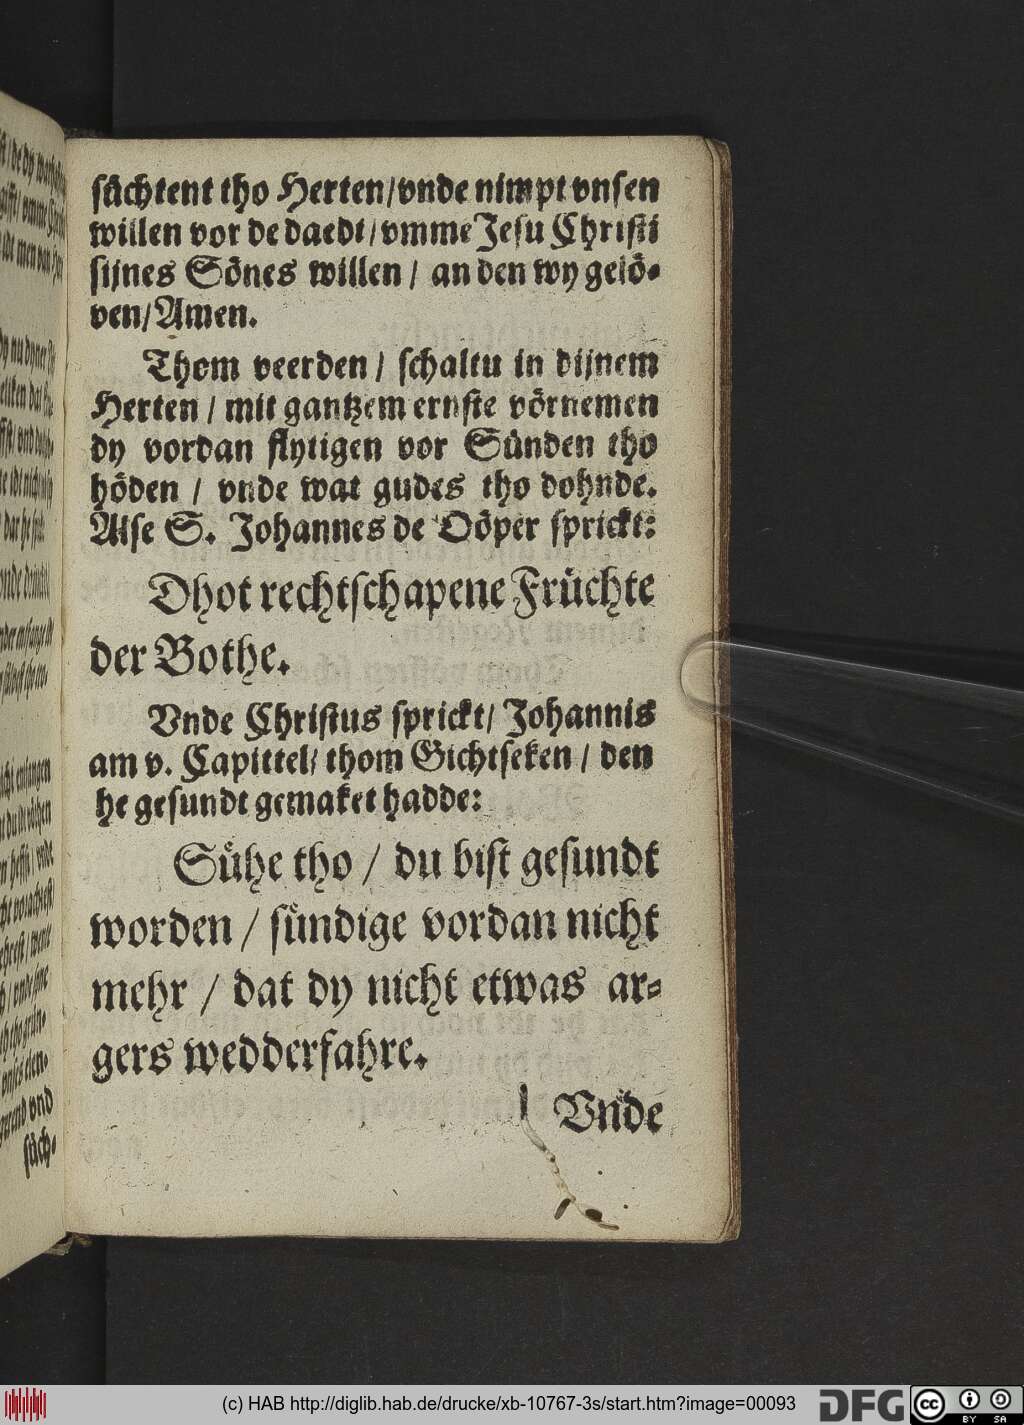 süchtent tho Herten/vnde nimpt vnsen
willen vor de daedt/vmme Jesu Christi
sijnes Sönes willen/ an den wy gelö-
ven/Amen.
Thom veerden/ schaltu in dijnem
Herten/ mit gantzem ernste vörnemen
dy vordan flytigen vor Sünden tho
höden/ vnde wat gudes tho dohnde.
Alse S. Johannes de Döper sprickt:
Dhot rechtschapene Früchte
der Bothe.
Vnde Christus sprickt/ Johannis
am v. Capittel/ thom Gichtseken/ den
he gesundt gemaket hadde:
Sühe tho/ du bist gesundt
worden/ sündige vordan nicht
mehr/ dat dy nicht etwas ar-
gers wedderfahre.
Vnde
(c) HAB http://diglib.hab.de/drucke/xb-10767-3s/start.htm?image=00093
DFG
cc BY SA